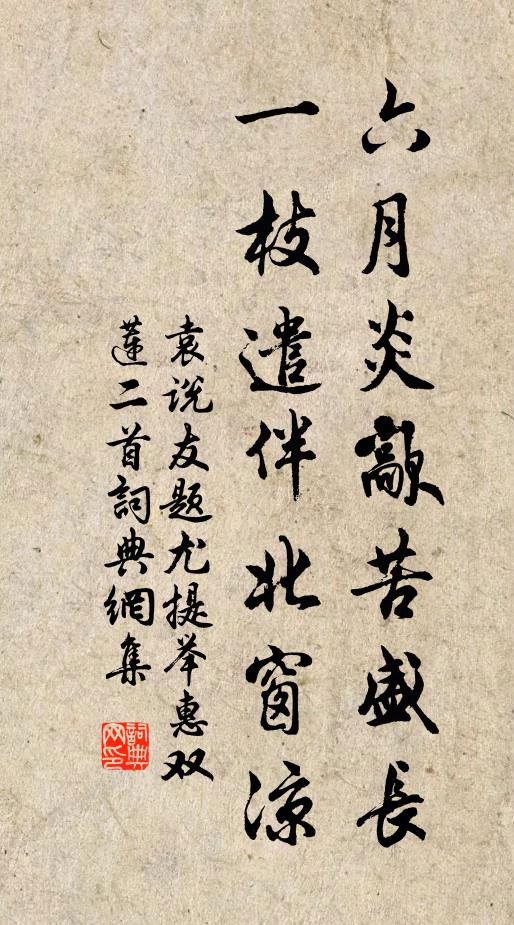 六月炎歊苦盛長
一枝遣伴北窗涼
袁说友题尤提举惠双
莲二首詞典網集
詞典
网印